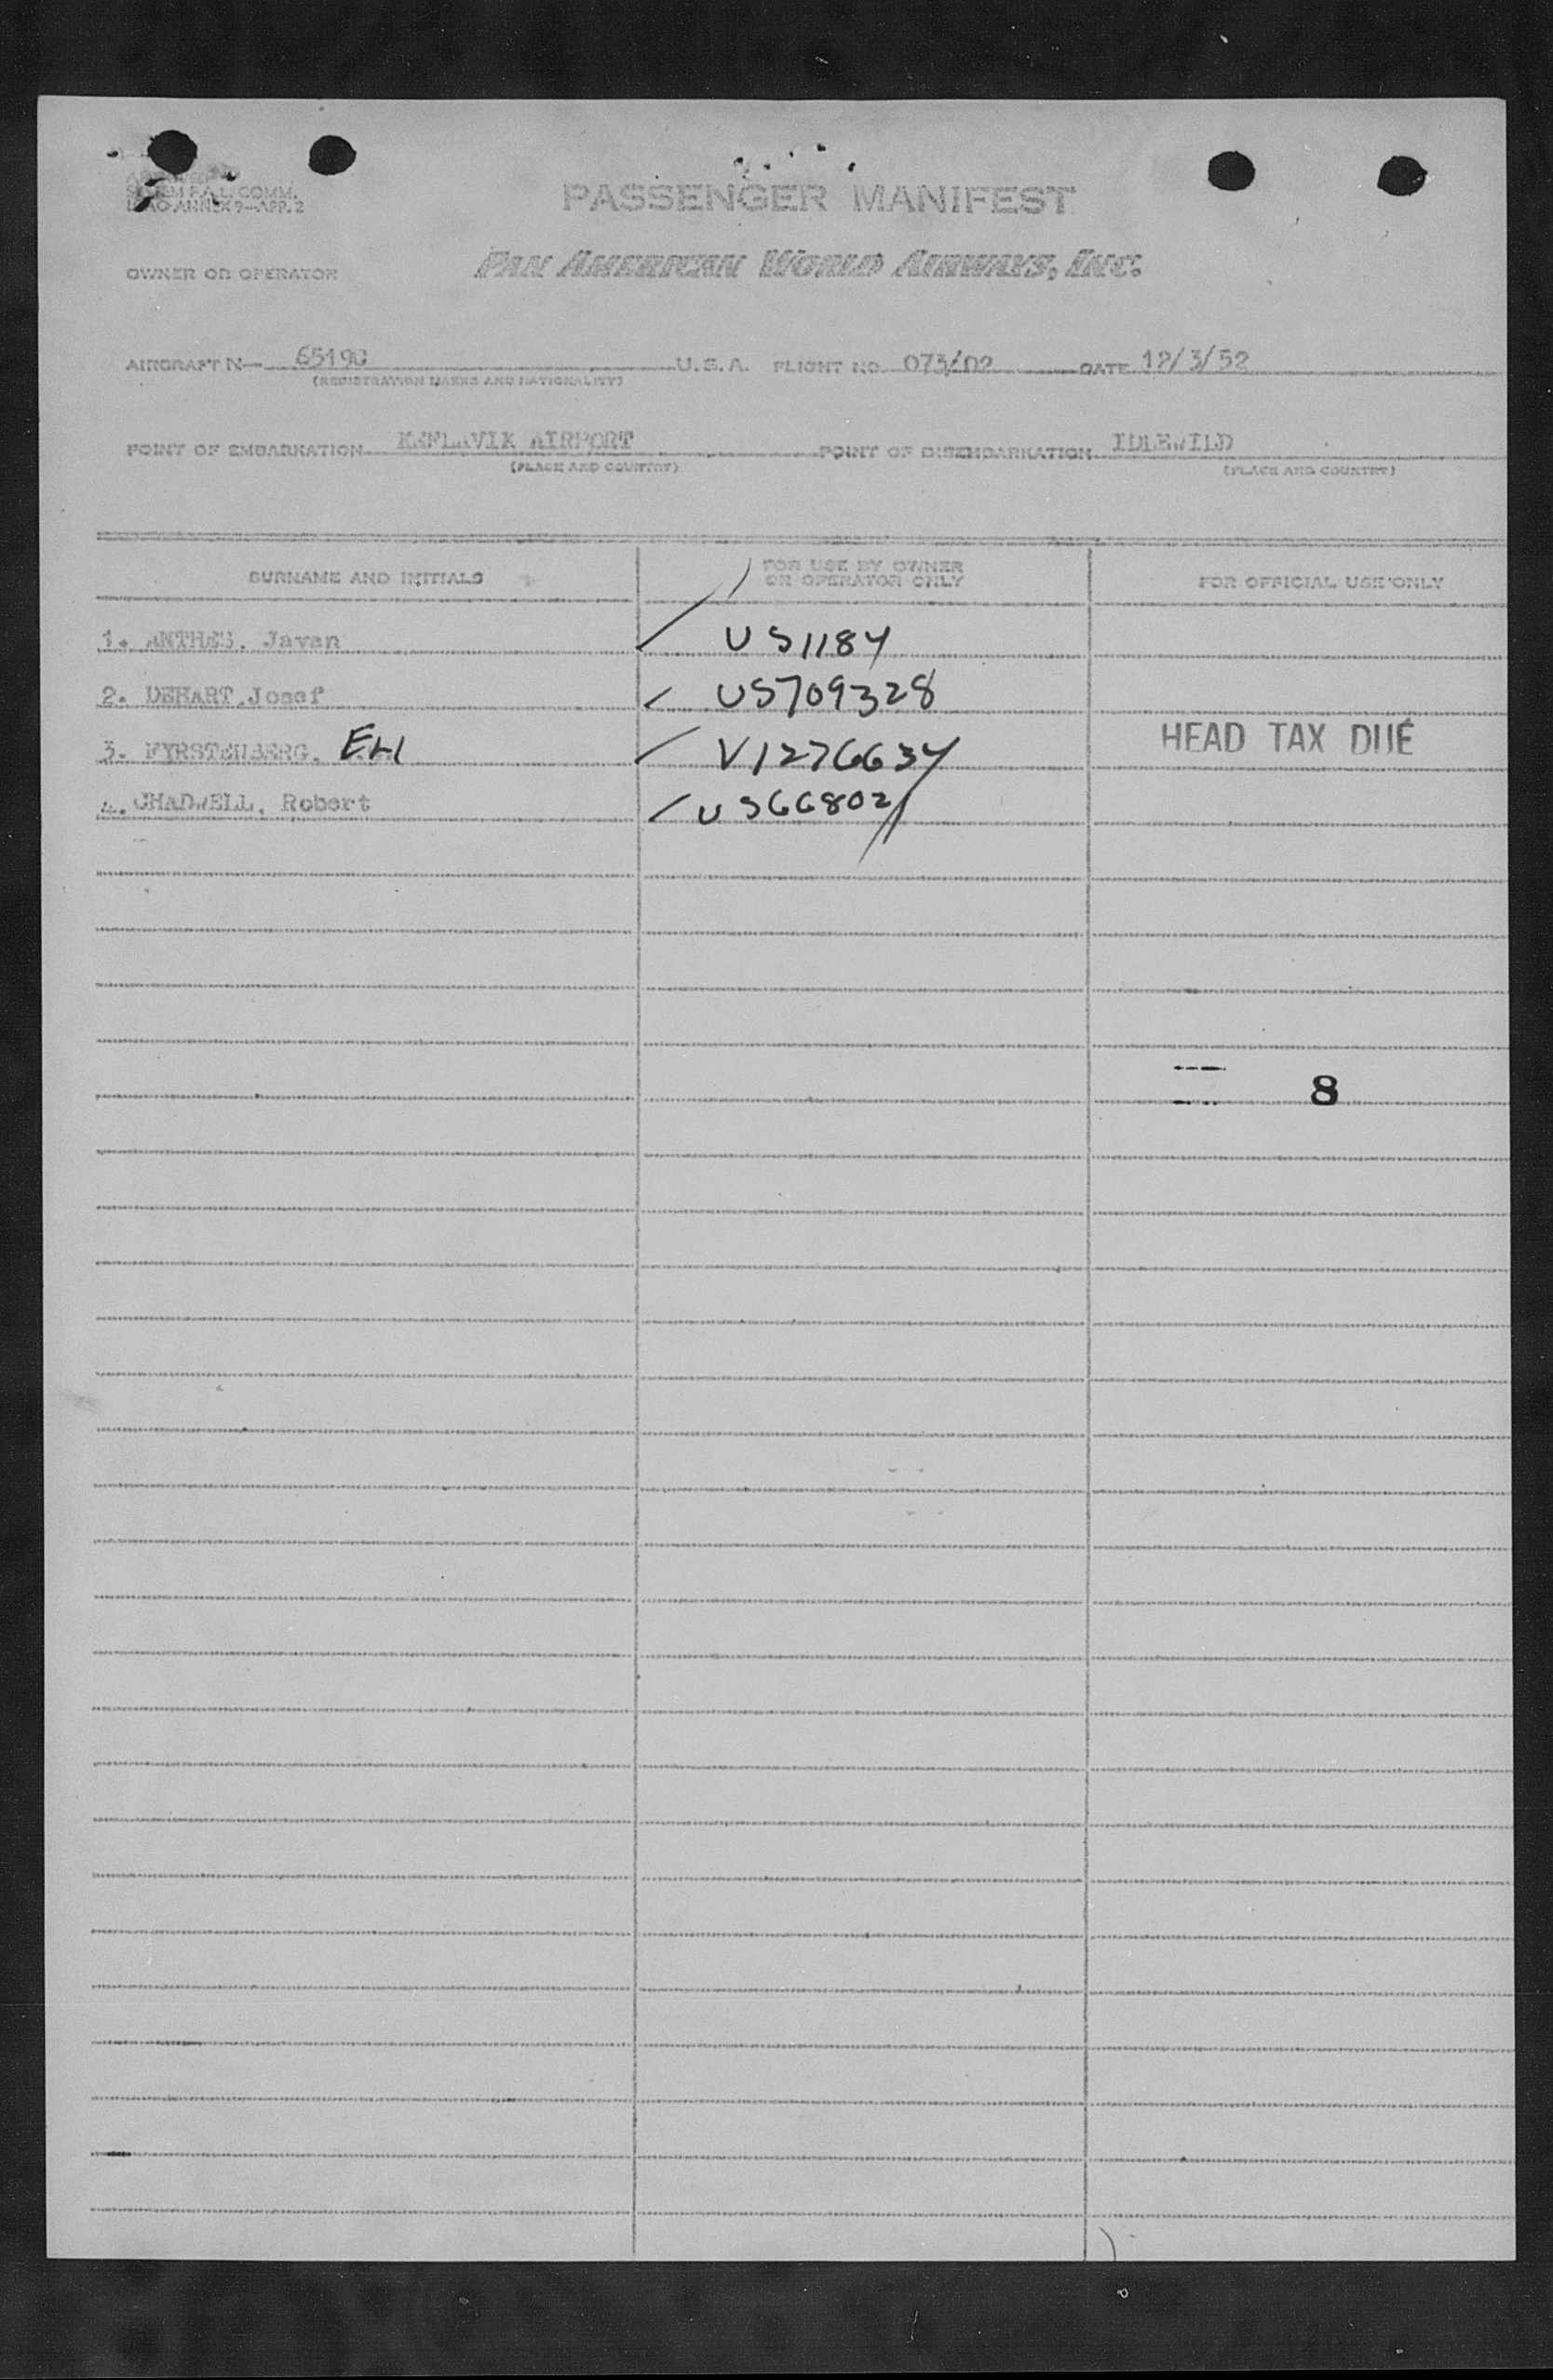 PASSENGER MANIFEST
OWNER OR OPERATOR PAN AMERICAN WORLD AIRWAYS, INC.
AIRCRAFT N— U.S.A. FLIGHT NO. 073/02 DATE 12/3/52
(REGISTRATION MARKS AND NATIONALITY)
POINT OF EMBARKATION KEFLAVIK AIRPORT POINT OF DISEMBARKATION IDLEWILD
(PLACE AND COUNTRY) (PLACE AND COUNTRY)
SURNAME AND INITIALS FOR USE BY OWNER OR OPERATOR ONLY FOR OFFICIAL USE ONLY
1. ANTHES, Javan US1184
2. DEHART, Josef US709328
3. FYRSTENBERG, ELI V1276634 HEAD TAX DUE
4. CHADWELL, Robert US66802
8